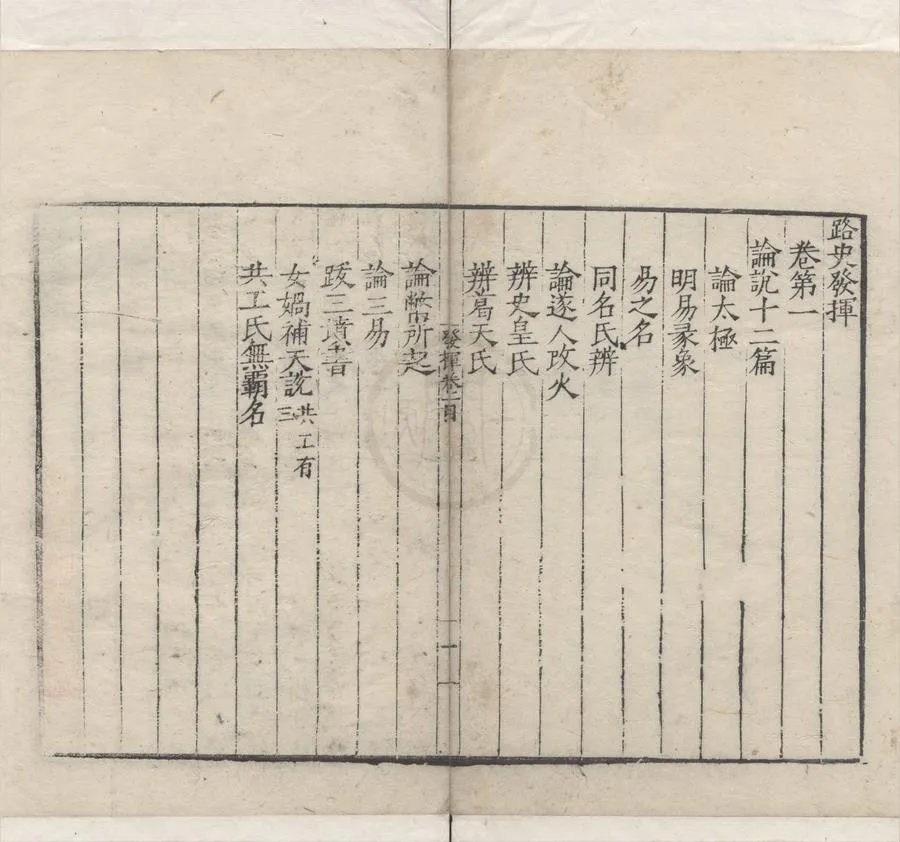 路史發揮
卷第一
論說十二篇
論太極
明易彖象
易之名
同名氏辨
論遂人改火
辨史皇氏
辨葛天氏
發揮卷一目
一
論幣所起
論三易
跋三墳書
女媧補天說 共工有三
共工氏無霸名